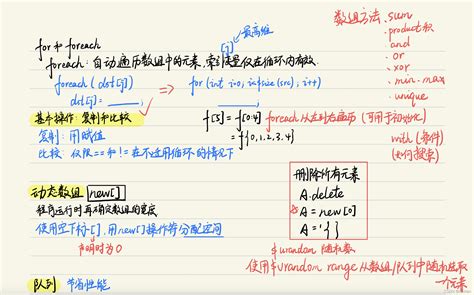 for 和 foreach
[j] → 最高维
foreach：自动遍历数组中的元素，牵引变量仅在循环内有效.
foreach ( dst[j] )
dst[j] = ____;
⇒
for (int i=0, i<$size(src); i++)
____;
基本操作：复制和比较
复制：用赋值
比较：仅限 == 和 != 在不适用循环的情况下
f[5] = f[0:4] foreach从左到右遍历（可用于初始化）
= f{0,1,2,3,4}
数组方法. sum
. product 积
. and
. or
. xor
. min. max
. unique
with (条件)
(如何搜索)
动态数组 new[]
程序运行时再确定数组的宽度
使用空下标[ ]. 用new[]操作符分配空间
声明时为0
删除所有元素
A.delete
A = new[0]
A = '{ }
$urandom 随机数
使用$urandom range从数组/队列中随机选取
一个元素
队列 节省性能